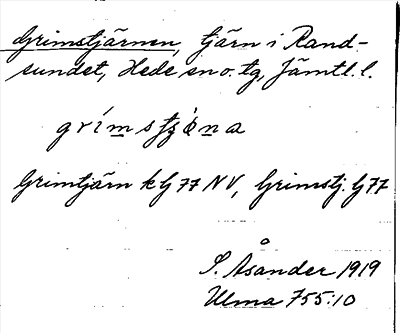 Grimstjärnen, tjärn i Rand-
sundet, Hede sn o. tg, Jämtl. l.
Grimtjärn k G 77 NV, Grimstj. G 77
S. Åsander 1919
Ulma 755:10